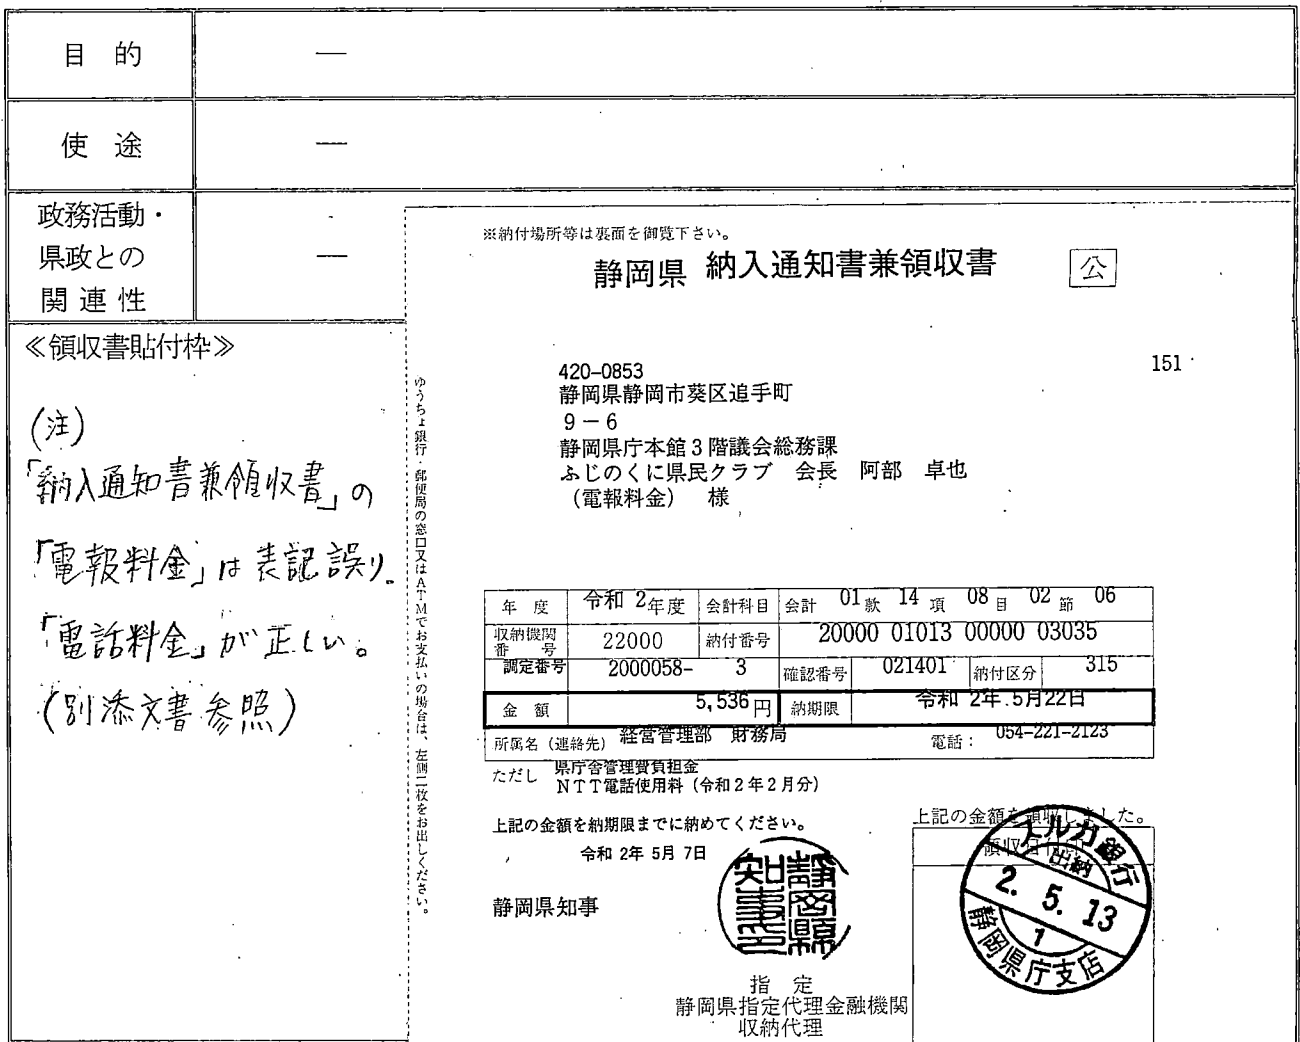 目 的 ―
使 途 ―
政務活動・
県政との ―
関 連 性
≪領収書貼付枠≫
(注)
「納入通知書兼領収書」の
「電報料金」は表記誤り。
「電話料金」が正しい。
(別添文書参照)
ゆうちょ銀行・郵便局の窓口又はATMでお支払いの場合は、左側二枚をお出しください。
※納付場所等は裏面を御覧下さい。
静岡県 納入通知書兼領収書 公
151
420-0853
静岡県静岡市葵区追手町
9－6
静岡県庁本館3階議会総務課
ふじのくに県民クラブ 会長 阿部 卓也
(電報料金) 様
年 度 令和 2年度 会計科目 会計 01款 14項 08目 02節 06
収納機関番号 22000 納付番号 20000 01013 00000 03035
調定番号 2000058- 3 確認番号 021401 納付区分 315
金 額 5,536円 納期限 令和 2年 5月22日
所属名(連絡先) 経営管理部 財務局 電話: 054-221-2123
ただし 県庁舎管理費負担金
NTT電話使用料(令和2年2月分)
上記の金額を納期限までに納めてください。
令和 2年 5月 7日
静岡県知事
静岡県知事之印
指 定
静岡県指定代理金融機関
収納代理
上記の金額を領収しました。
領収日付印
スルガ銀行
出納
2. 5. 13
1
静岡県庁支店